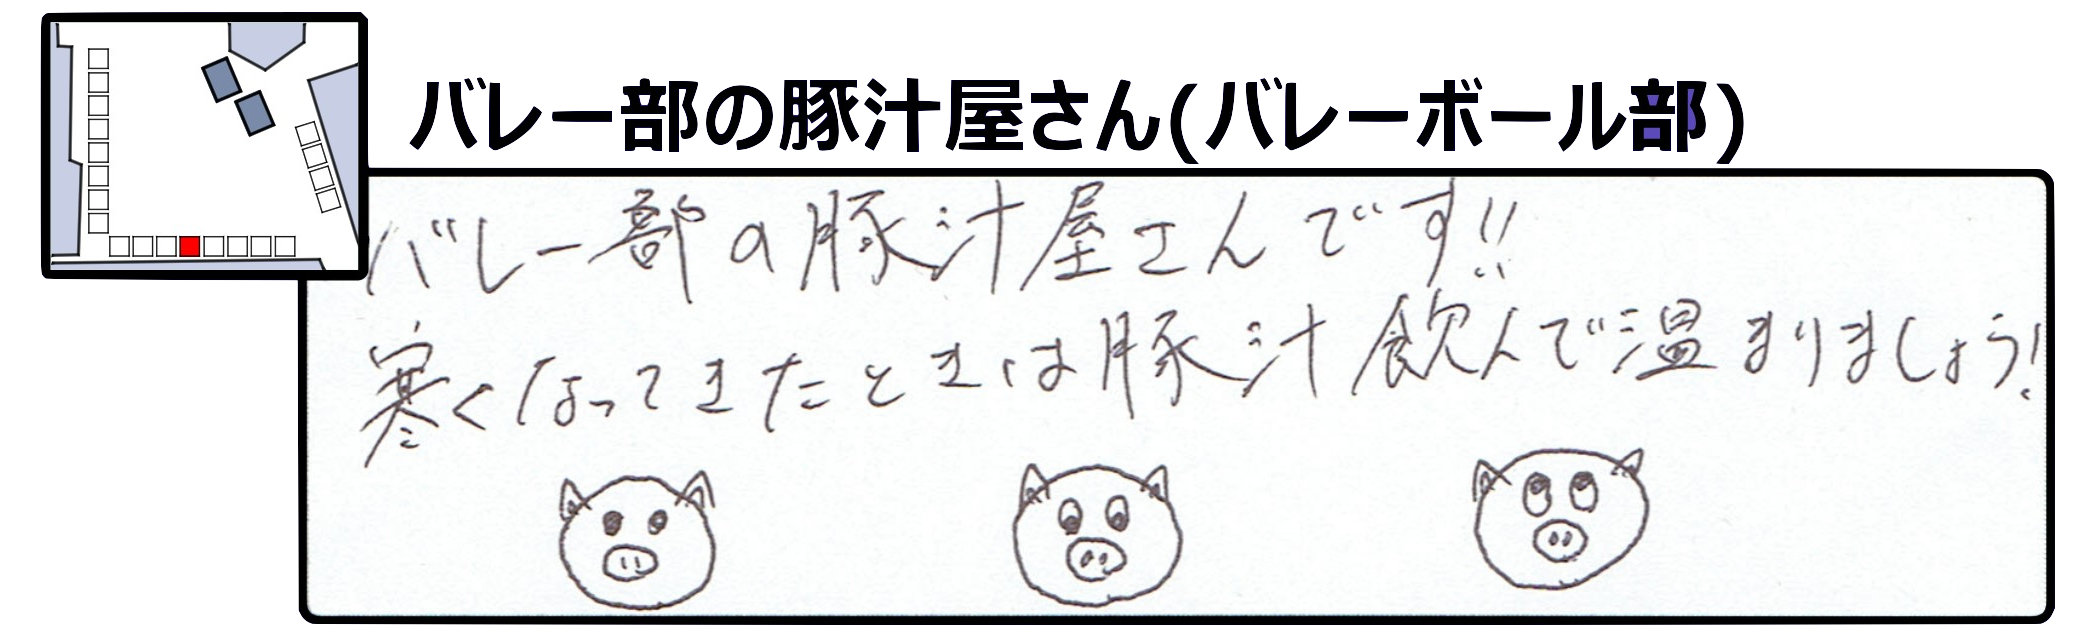 バレー部の豚汁屋さん(バレーボール部)
バレー部の豚汁屋さんです!!
寒くなってきたときは豚汁飲んで温まりましょう!